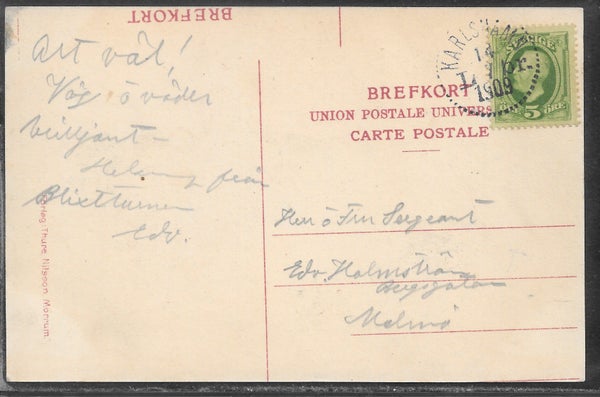 BREFKORT
Allt väl!
Väg o väder
brilljant-
Helsning från
Blixtturen
Edv.
Förlag Thure Nilsson Mörrum.
KARLSHAMN
14
1909
SVERIGE
5 ÖRE
BREFKORT
UNION POSTALE UNIVERS
CARTE POSTALE
Herr o Fru Sergeant
Edv. Holmström
Malmö